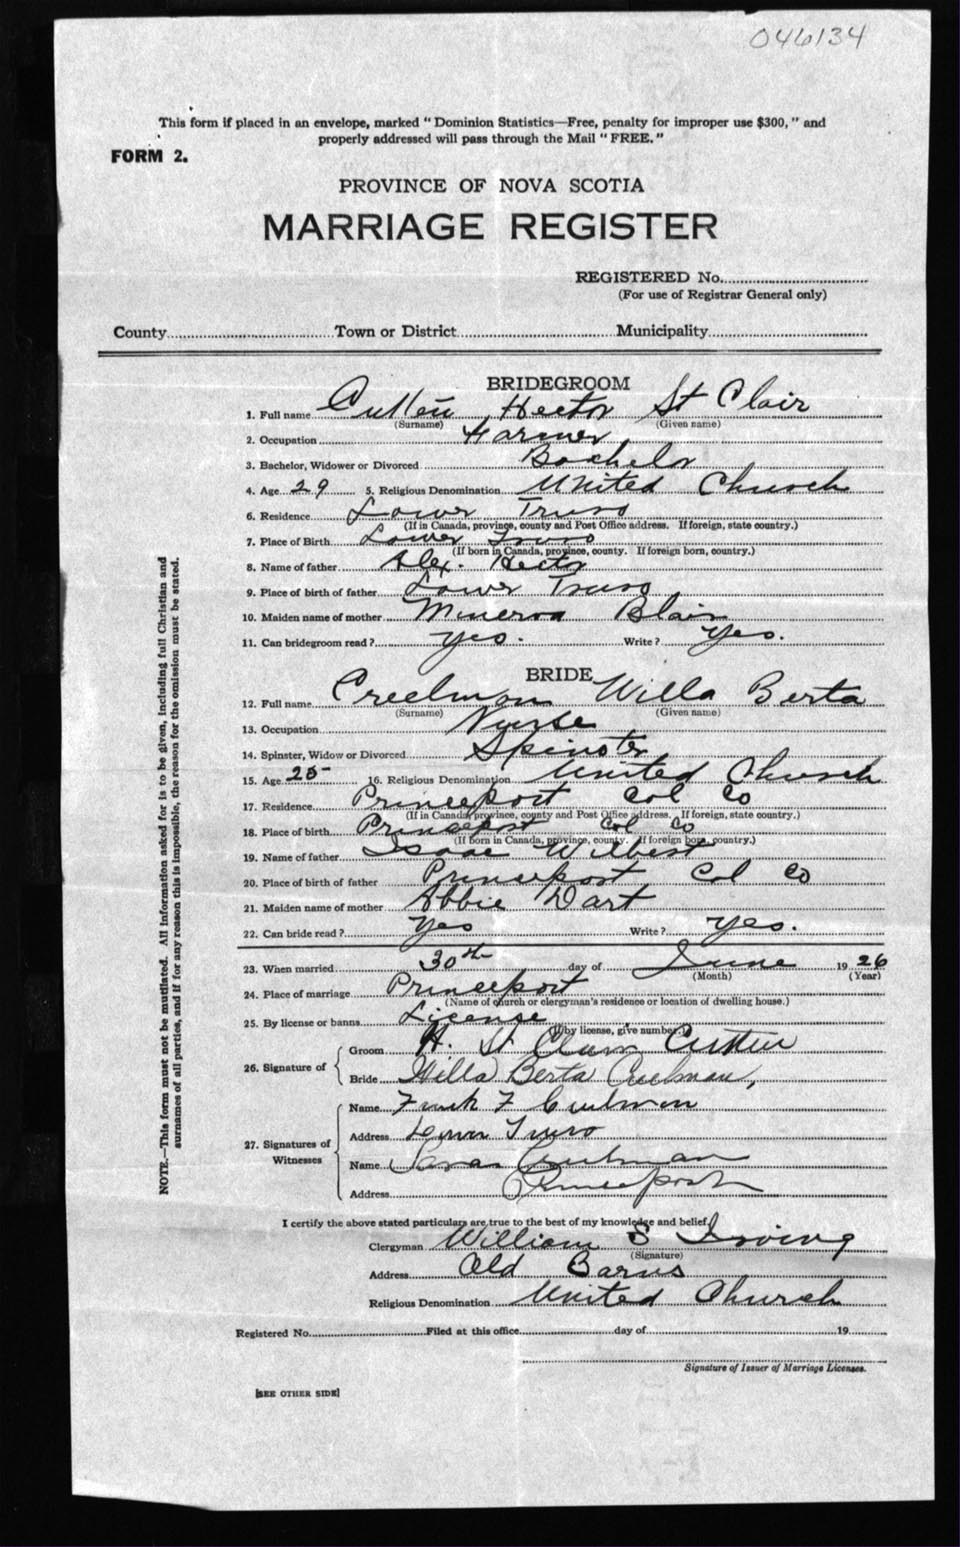 046134
This form if placed in an envelope, marked "Dominion Statistics—Free, penalty for improper use $300," and
properly addressed will pass through the Mail "FREE."
FORM 2.
PROVINCE OF NOVA SCOTIA
MARRIAGE REGISTER
REGISTERED No.
(For use of Registrar General only)
County Town or District Municipality
BRIDEGROOM
1. Full name Cutten Hector St Clair
(Surname) (Given name)
2. Occupation Farmer
3. Bachelor, Widower or Divorced Bachelor
4. Age 29 5. Religious Denomination United Church
6. Residence Lower Truro
(If in Canada, province, county and Post Office address. If foreign, state country.)
7. Place of Birth Lower Truro
(If born in Canada, province, county. If foreign born, country.)
8. Name of father Alex. Hector
9. Place of birth of father Lower Truro
10. Maiden name of mother Minerva Blair
11. Can bridegroom read? yes. Write? yes.
BRIDE
12. Full name Creelman Willa Berta
(Surname) (Given name)
13. Occupation Nurse
14. Spinster, Widow or Divorced Spinster
15. Age 25 16. Religious Denomination United Church
17. Residence Princeport Col Co
(If in Canada, province, county and Post Office address. If foreign, state country.)
18. Place of birth Princeport Col Co
(If born in Canada, province, county. If foreign born, country.)
19. Name of father Isaac Wilbert
20. Place of birth of father Princeport Col Co
21. Maiden name of mother Abbie Dart
22. Can bride read? Yes Write? yes.
23. When married 30th day of June 1926
(Month) (Year)
24. Place of marriage Princeport
(Name of church or clergyman's residence or location of dwelling house.)
25. By license or banns License
(If by license, give number.)
26. Signature of Groom H. St. Clair Cutten
Bride Willa Berta Creelman,
27. Signatures of Witnesses
Name Frank F Creelman
Address Lower Truro
Name Creelman
Address Princeport
I certify the above stated particulars are true to the best of my knowledge and belief.
Clergyman William S Irving
(Signature)
Address Old Barns
Religious Denomination United Church
Registered No. Filed at this office day of 19
Signature of Issuer of Marriage Licenses.
[SEE OTHER SIDE]
NOTE.—This form must not be mutilated. All information asked for is to be given, including full Christian and
surnames of all parties, and if for any reason this is impossible, the reason for the omission must be stated.